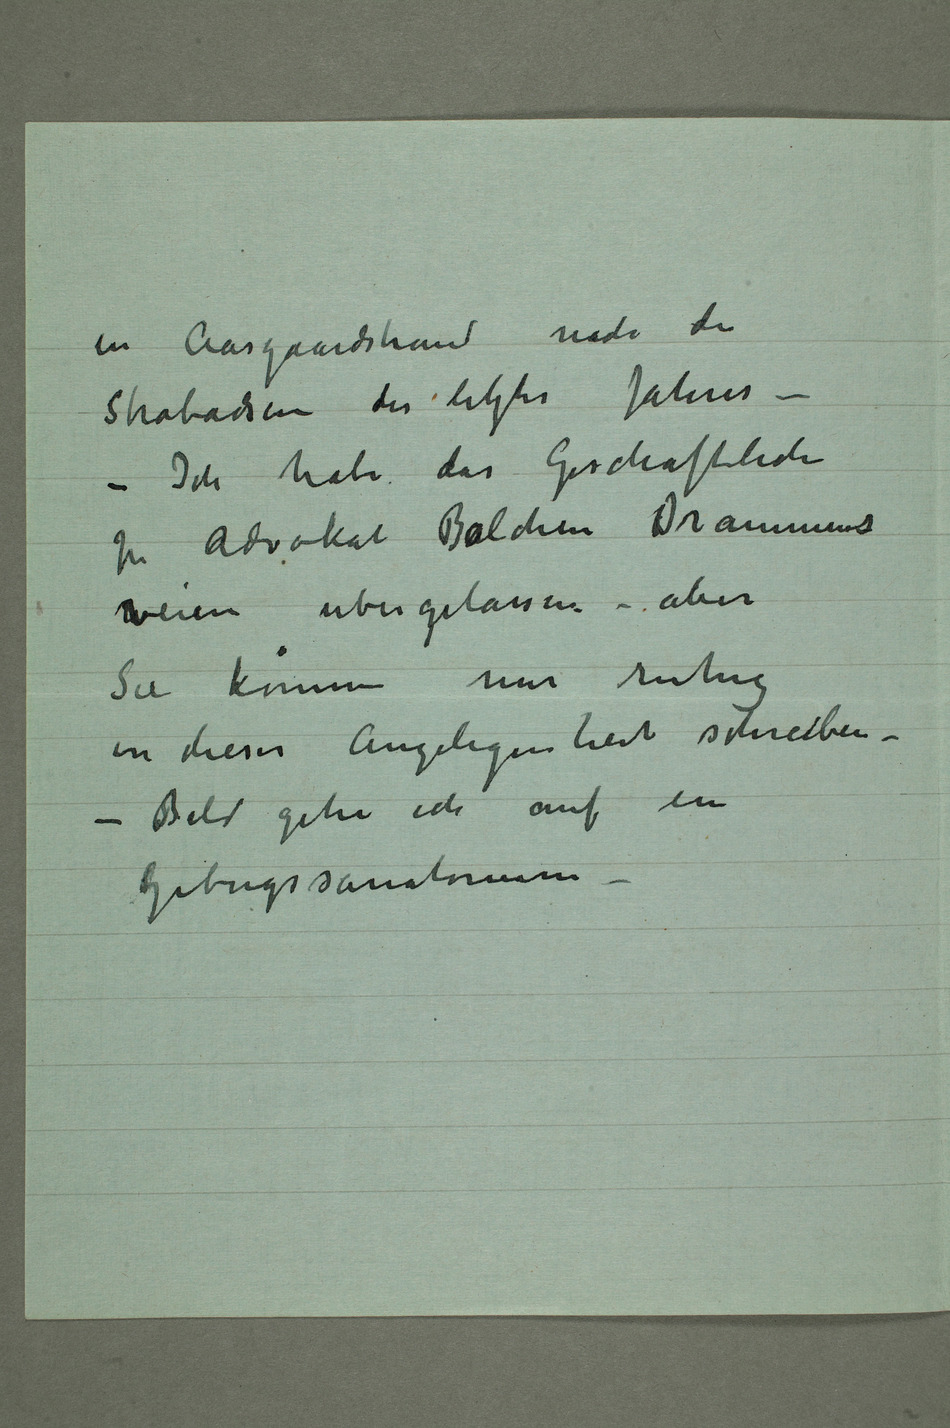 in Aasgaardstrand nach den
Strabadsen des letztes Jahres –
– Ich habe das Geschaftliche
zu Advokat Boldchen Drammens
veien ubergelassen – aber
Sie können nur ruhig
in dieser Angelegenheit schreiben –
– Bald gehe ich auf ein
Gebirgssanatorium –